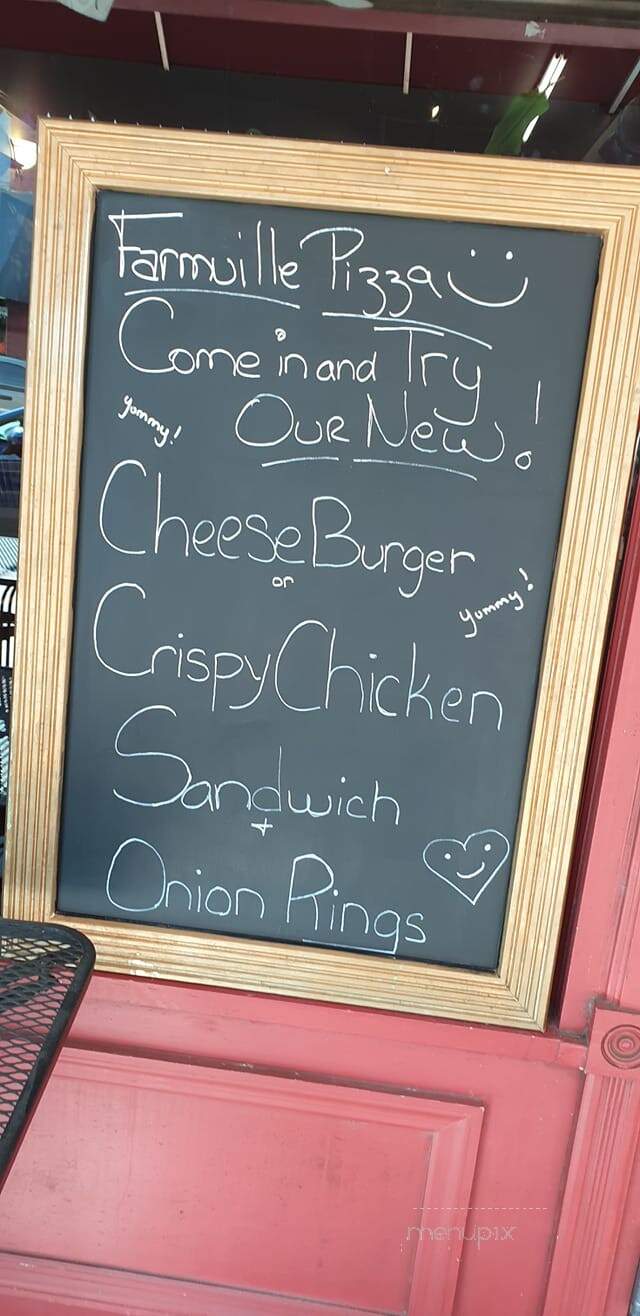 Farmville Pizza
Come in and Try
yummy! Our New!
CheeseBurger
or
yummy!
Crispy Chicken
Sandwich
+
Onion Rings
menupix